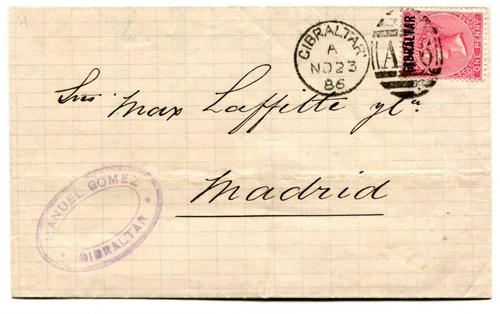 GIBRALTAR
A
NO 23
86
A26
GIBRALTAR
ONE PENNY
Sres Max Laffitte y Ca
Madrid
MANUEL GOMEZ
GIBRALTAR